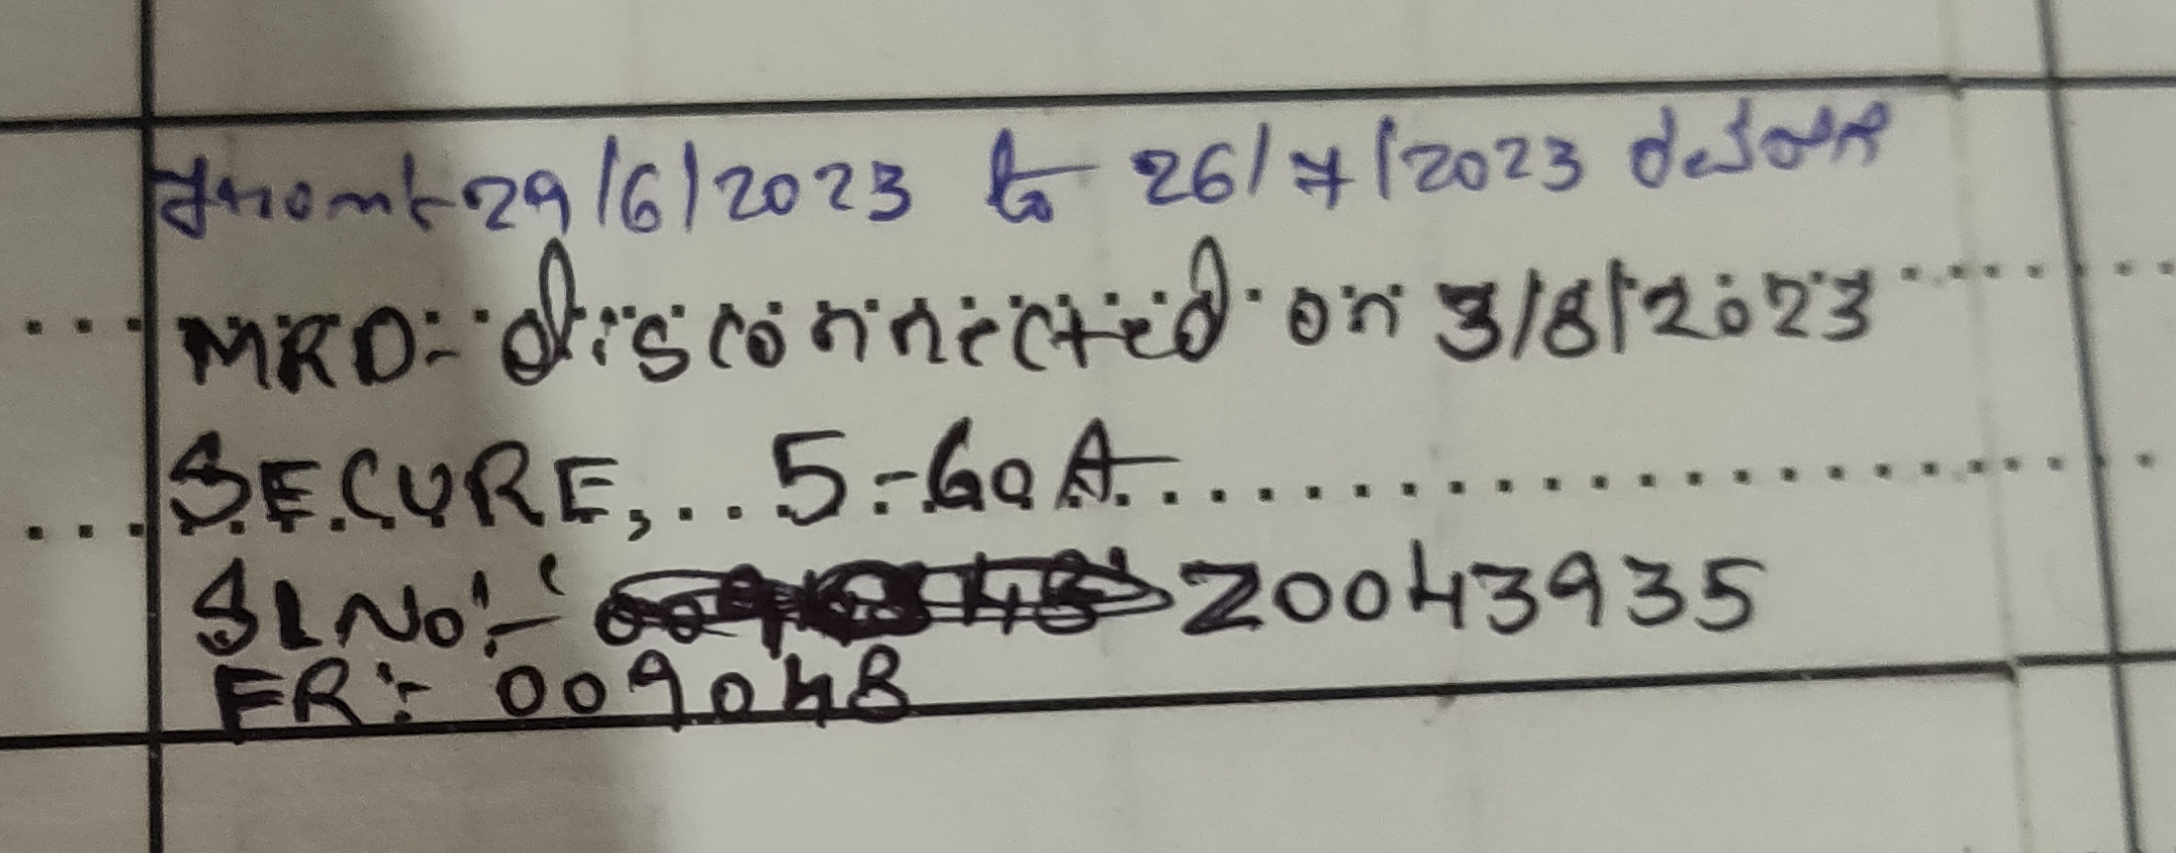 from:- 29/6/2023 to 26/7/2023
MRD:- disconnected on 3/8/2023
SECURE, 5-60A
SL No:- 20043935
FR:- 009048